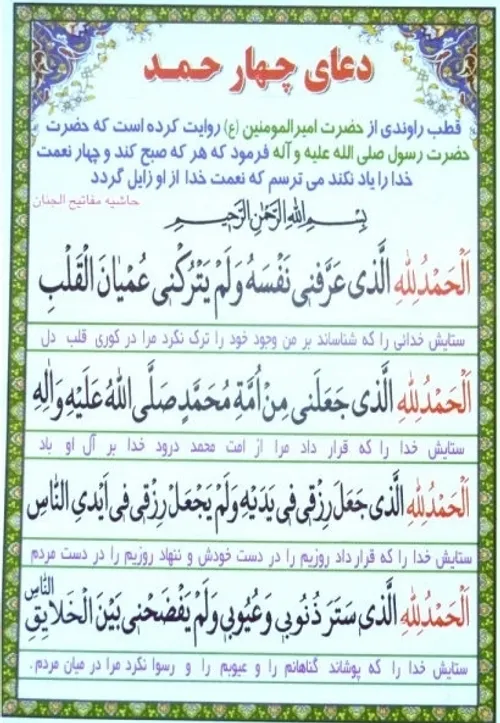 دعای چهار حمد
قطب راوندی از حضرت امیرالمومنین (ع) روایت کرده است که حضرت
حضرت رسول صلی الله علیه و آله فرمود که هر که صبح کند و چهار نعمت
خدا را یاد نکند می ترسم که نعمت خدا از او زایل گردد
حاشیه مفاتیح الجنان
بِسْمِ اللهِ الرَّحْمٰنِ الرَّحِیمِ
اَلْحَمْدُلِلّٰهِ الَّذی عَرَّفَنی نَفْسَهُ وَلَمْ یَتْرُکْنی عُمْیانَ الْقَلْبِ
ستایش خدائی را که شناساند بر من وجود خود را ترک نکرد مرا در کوری قلب دل
اَلْحَمْدُلِلّٰهِ الَّذی جَعَلَنی مِنْ اُمَّةِ مُحَمَّدٍ صَلَّی اللهُ عَلَیْهِ وَآلِهِ
ستایش خدا را که قرار داد مرا از امت محمد درود خدا بر آل او باد
اَلْحَمْدُلِلّٰهِ الَّذی جَعَلَ رِزْقی فی یَدَیْهِ وَلَمْ یَجْعَلْ رِزْقی فی اَیْدِی النّاسِ
ستایش خدا را که قرار داد روزیم را در دست خودش و ننهاد روزیم را در دست مردم
اَلْحَمْدُلِلّٰهِ الَّذی سَتَرَ ذُنُوبی وَعُیُوبی وَلَمْ یَفْضَحْنی بَیْنَ الْخَلایِقِ النّاسِ
ستایش خدا را که پوشاند گناهانم را و عیوبم را و رسوا نکرد مرا در میان مردم.